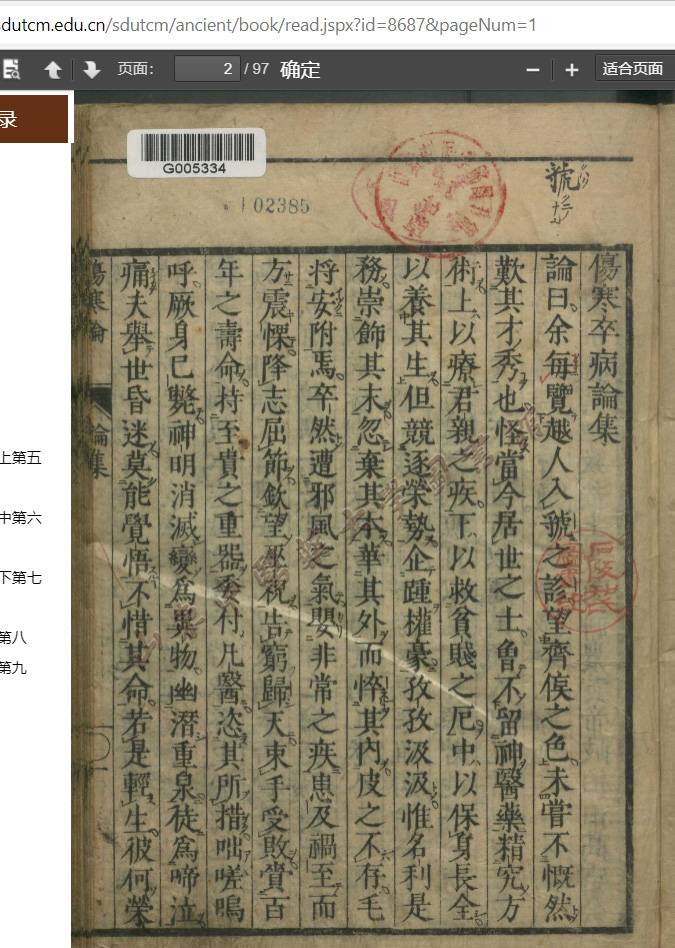 sdutcm.edu.cn/sdutcm/ancient/book/read.jspx?id=8687&pageNum=1
页面: 2 / 97 确定 − + 适合页面
录
上第五
中第六
下第七
第八
第九
G005334
102385
號
傷寒卒病論集
論曰余每覽越人入虢之診望齊侯之色未嘗不慨然
歎其才秀也怪當今居世之士曾不留神醫藥精究方
術上以療君親之疾下以救貧賤之厄中以保身長全
以養其生但競逐榮勢企踵權豪孜孜汲汲惟名利是
務崇飾其末忽棄其本華其外而悴其內皮之不存毛
將安附焉卒然遭邪風之氣嬰非常之疾患及禍至而
方震慄降志屈節欽望巫祝告窮歸天束手受敗賫百
年之壽命持至貴之重器委付凡醫恣其所措咄嗟嗚
呼厥身已斃神明消滅變爲異物幽潛重泉徒爲啼泣
痛夫舉世昏迷莫能覺悟不惜其命若是輕生彼何榮
傷寒論 論集